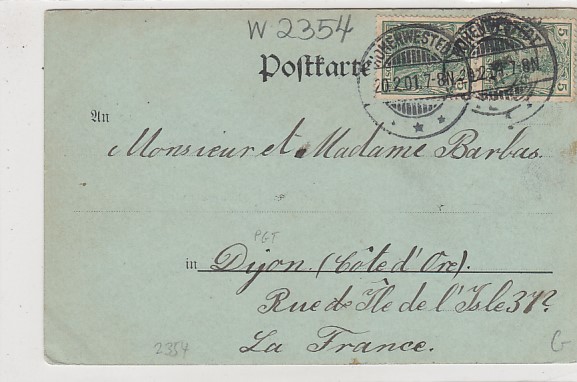 W 2354
Postkarte
5 5
HOHENWESTEDT
20.2.01.7-8N.
HOHENWESTEDT
20.2.01.7-8N
An
Monsieur et Madame Barbas.
PGT
in Dijon. (Côte d'Ore).
Rue de Île de l'Isle
La France.
2354
G